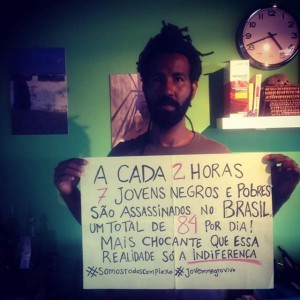 A CADA 2 HORAS
7 JOVENS NEGROS E POBRES
SÃO ASSASSINADOS NO BRASIL,
UM TOTAL DE 84 POR DIA!
MAIS CHOCANTE QUE ESSA
REALIDADE SÓ A INDIFERENÇA
#SOMOSTODOSCOMPLEXO #JOVEMNEGROVIVO